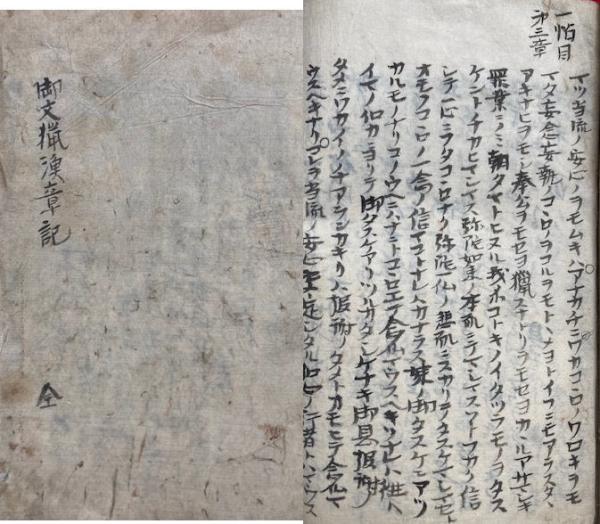 御文猟漁章記
全
一帖目
第三章
マツ当流ノ安心ノヲモムキハアナカチニワカコヽロノワロキヲモ
マタ妄念妄執ノコヽロヲコルヲモトヽメヨトイフニモアラスタヽ
アキナヒヲモシ奉公ヲモセヨ猟スナトリヲモセヨカヽルアサマシキ
罪業ニノミ朝夕マトヒヌル我ホコトキノイタツラモノヲタス
ケントチカヒマシマス弥陀如来ノ本願ニテマシマスソトフカク信
シテ一心ニフタコヽロナク弥陀一仏ノ悲願ニスカリテタスケマシマセト
オモフコヽロノ一念ノ信マコトナレハカナラス如来ノ御タスケニアツ
カルモノナリコノウヘニハナニトコヽロエテ念仏マウスヘキソナレハ往
イマノ信力ニヨリテ御タスケアリツルカタシケナキ御恩報謝ノ
タメニワカイノチアランカキリハ報謝ノタメトオモヒテ念仏マ
ウスヘキナリコレヲ当流ノ安心決定シタル行者トハマウス